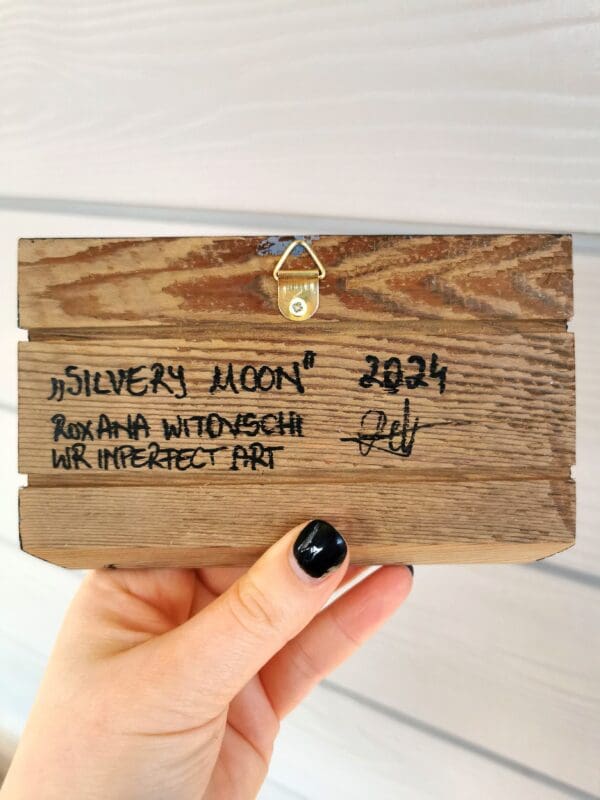 „SILVERY MOON" 2024
ROXANA WITOVSCHI
WR INPERFECT ART